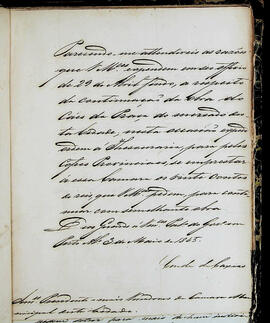 Parecendo-me attendiveis as razões
que V. Mces expendem em seo officio
de 29 de Abril findo, a respeito
da continuação da Obra do
Cáes da Praça do mercado des-
ta Cidade, nesta occasião
á Thesouraria para pelos
Cofres Provinciaes, se emprestar
a essa Camara os vinte contos
de reis que V. Mces pedem, para conti-
nuar com semelhante obra
Deos Guarde a Vmces Palo do Govo em
Porto Ale 3 de Maio de 1845.
Conde de Caxias
Snres Presidente e mais Vereadores da Camara Mu-
nicipal desta Cidade.